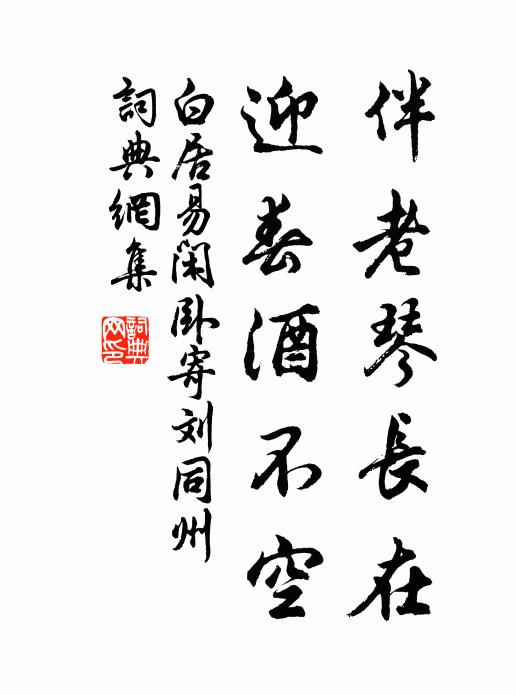 伴老琴長在
迎春酒不空
白居易閑卧寄刘同州
詞典網集
詞典
网印